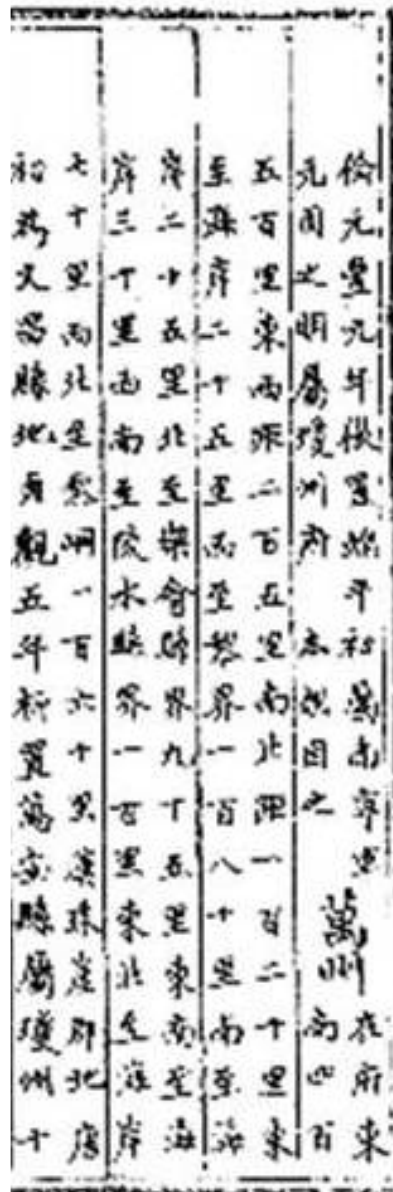 儋元豐元年復置端平初為南寧軍
元因之明屬瓊州府　本朝因之
萬州
在府東
南四百
五百里東西距二百五里南北距一百二十里東
至海岸二十五里西至黎界一百八十里南至海
岸二十五里北至樂會縣界九十五里東南至海
岸三十里西南至陵水縣界一百里東北至海岸
七十里西北至黎峒一百六十里漢珠崖郡地唐
初為文昌縣地貞觀五年析置萬安縣屬瓊州十